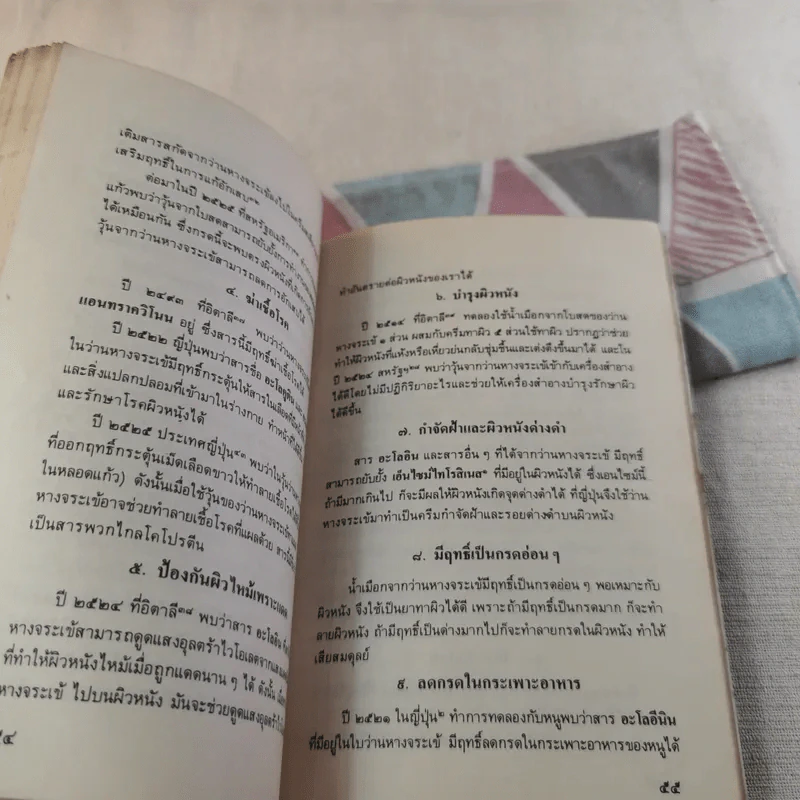 เติมสารสกัดจากว่านหางจระเข้ลงไปใน
เสริมฤทธิ์ในการแก้อักเสบ
ต่อมาในปี ๒๕๒๕ ที่สหรัฐอเมริกา
แก้วพบว่าวุ้นจากใบสดสามารถยับยั้งการ
ได้เหมือนกัน ซึ่งกรดนี้จะพบตรงผิวหนังที่
วุ้นจากว่านหางจระเข้สามารถลดการอักเสบได้
๔. ฆ่าเชื้อโรค
ปี ๒๔๙๓ ที่อิตาลี๓๗ พบว่าว่านหาง
แอนทราควิโนน อยู่ ซึ่งสารนี้มีฤทธิ์ฆ่าเชื้อโรคได้
ปี ๒๕๒๒ ญี่ปุ่นพบว่าสารชื่อ อะโลอูติน และ
ในว่านหางจระเข้มีฤทธิ์กระตุ้นให้สารในเลือดที่
และสิ่งแปลกปลอมที่เข้ามาในร่างกาย ทำหน้าที่
และรักษาโรคผิวหนังได้
ปี ๒๕๒๕ ประเทศญี่ปุ่น๔๓ พบว่าในวุ้นว่าน
ที่ออกฤทธิ์กระตุ้นเม็ดเลือดขาวให้ทำลายเชื้อโรค
ในหลอดแก้ว) ดังนั้นเมื่อใช้วุ้นของว่านหางจระเข้
หางจระเข้อาจช่วยทำลายเชื้อโรคที่แผลด้วย สารที่
เป็นสารพวกไกลโคโปรตีน
๕. ป้องกันผิวไหม้เพราะแดด
ปี ๒๕๒๔ ที่อิตาลี๓๘ พบว่าสาร อะโลอิน
หางจระเข้สามารถดูดแสงอุลตร้าไวโอเลตจากแสงแดด
ที่ทำให้ผิวหนังไหม้เมื่อถูกแดดนาน ๆ ได้ ดังนั้น
หางจระเข้ ไปบนผิวหนัง มันจะช่วยดูดแสงอุลตร้าไว
๕๔
ทำอันตรายต่อผิวหนังของเราได้
๖. บำรุงผิวหนัง
ปี ๒๕๑๔ ที่อิตาลี๓๙ ทดลองใช้น้ำเมือกจากใบสดของว่าน
หางจระเข้ ๑ ส่วน ผสมกับครีมทาผิว ๕ ส่วนใช้ทาผิว ปรากฏว่าช่วย
ทำให้ผิวหนังที่แห้งหรือเหี่ยวย่นกลับชุ่มชื้นและเต่งตึงขึ้นมาได้ และใน
ปี ๒๕๒๔ สหรัฐฯ พบว่าวุ้นจากว่านหางจระเข้เข้ากับเครื่องสำอาง
ได้ดีโดยไม่มีปฏิกิริยาอะไรและช่วยให้เครื่องสำอางบำรุงรักษาผิว
ได้ดีขึ้น
๗. กำจัดฝ้าและผิวหนังด่างดำ
สาร อะโลอิน และสารอื่น ๆ ที่ได้จากว่านหางจระเข้ มีฤทธิ์
สามารถยับยั้ง เอ็นไซม์ไทโรสิเนส ที่มีอยู่ในผิวหนังได้ ซึ่งเอนไซม์นี้
ถ้ามีมากเกินไป ก็จะมีผลให้ผิวหนังเกิดจุดด่างดำได้ ที่ญี่ปุ่นจึงใช้ว่าน
หางจระเข้มาทำเป็นครีมกำจัดฝ้าและรอยด่างดำบนผิวหนัง
๘. มีฤทธิ์เป็นกรดอ่อน ๆ
น้ำเมือกจากว่านหางจระเข้มีฤทธิ์เป็นกรดอ่อน ๆ พอเหมาะกับ
ผิวหนัง จึงใช้เป็นยาทาผิวได้ดี เพราะถ้ามีฤทธิ์เป็นกรดมาก ก็จะทำ
ลายผิวหนัง ถ้ามีฤทธิ์เป็นด่างมากไปก็จะทำลายกรดในผิวหนัง ทำให้
เสียสมดุลย์
๙. ลดกรดในกระเพาะอาหาร
ปี ๒๕๒๑ ในญี่ปุ่น๒ ทำการทดลองกับหนูพบว่าสาร อะโลอีนิน
ที่มีอยู่ในใบว่านหางจระเข้ มีฤทธิ์ลดกรดในกระเพาะอาหารของหนูได้
๕๕